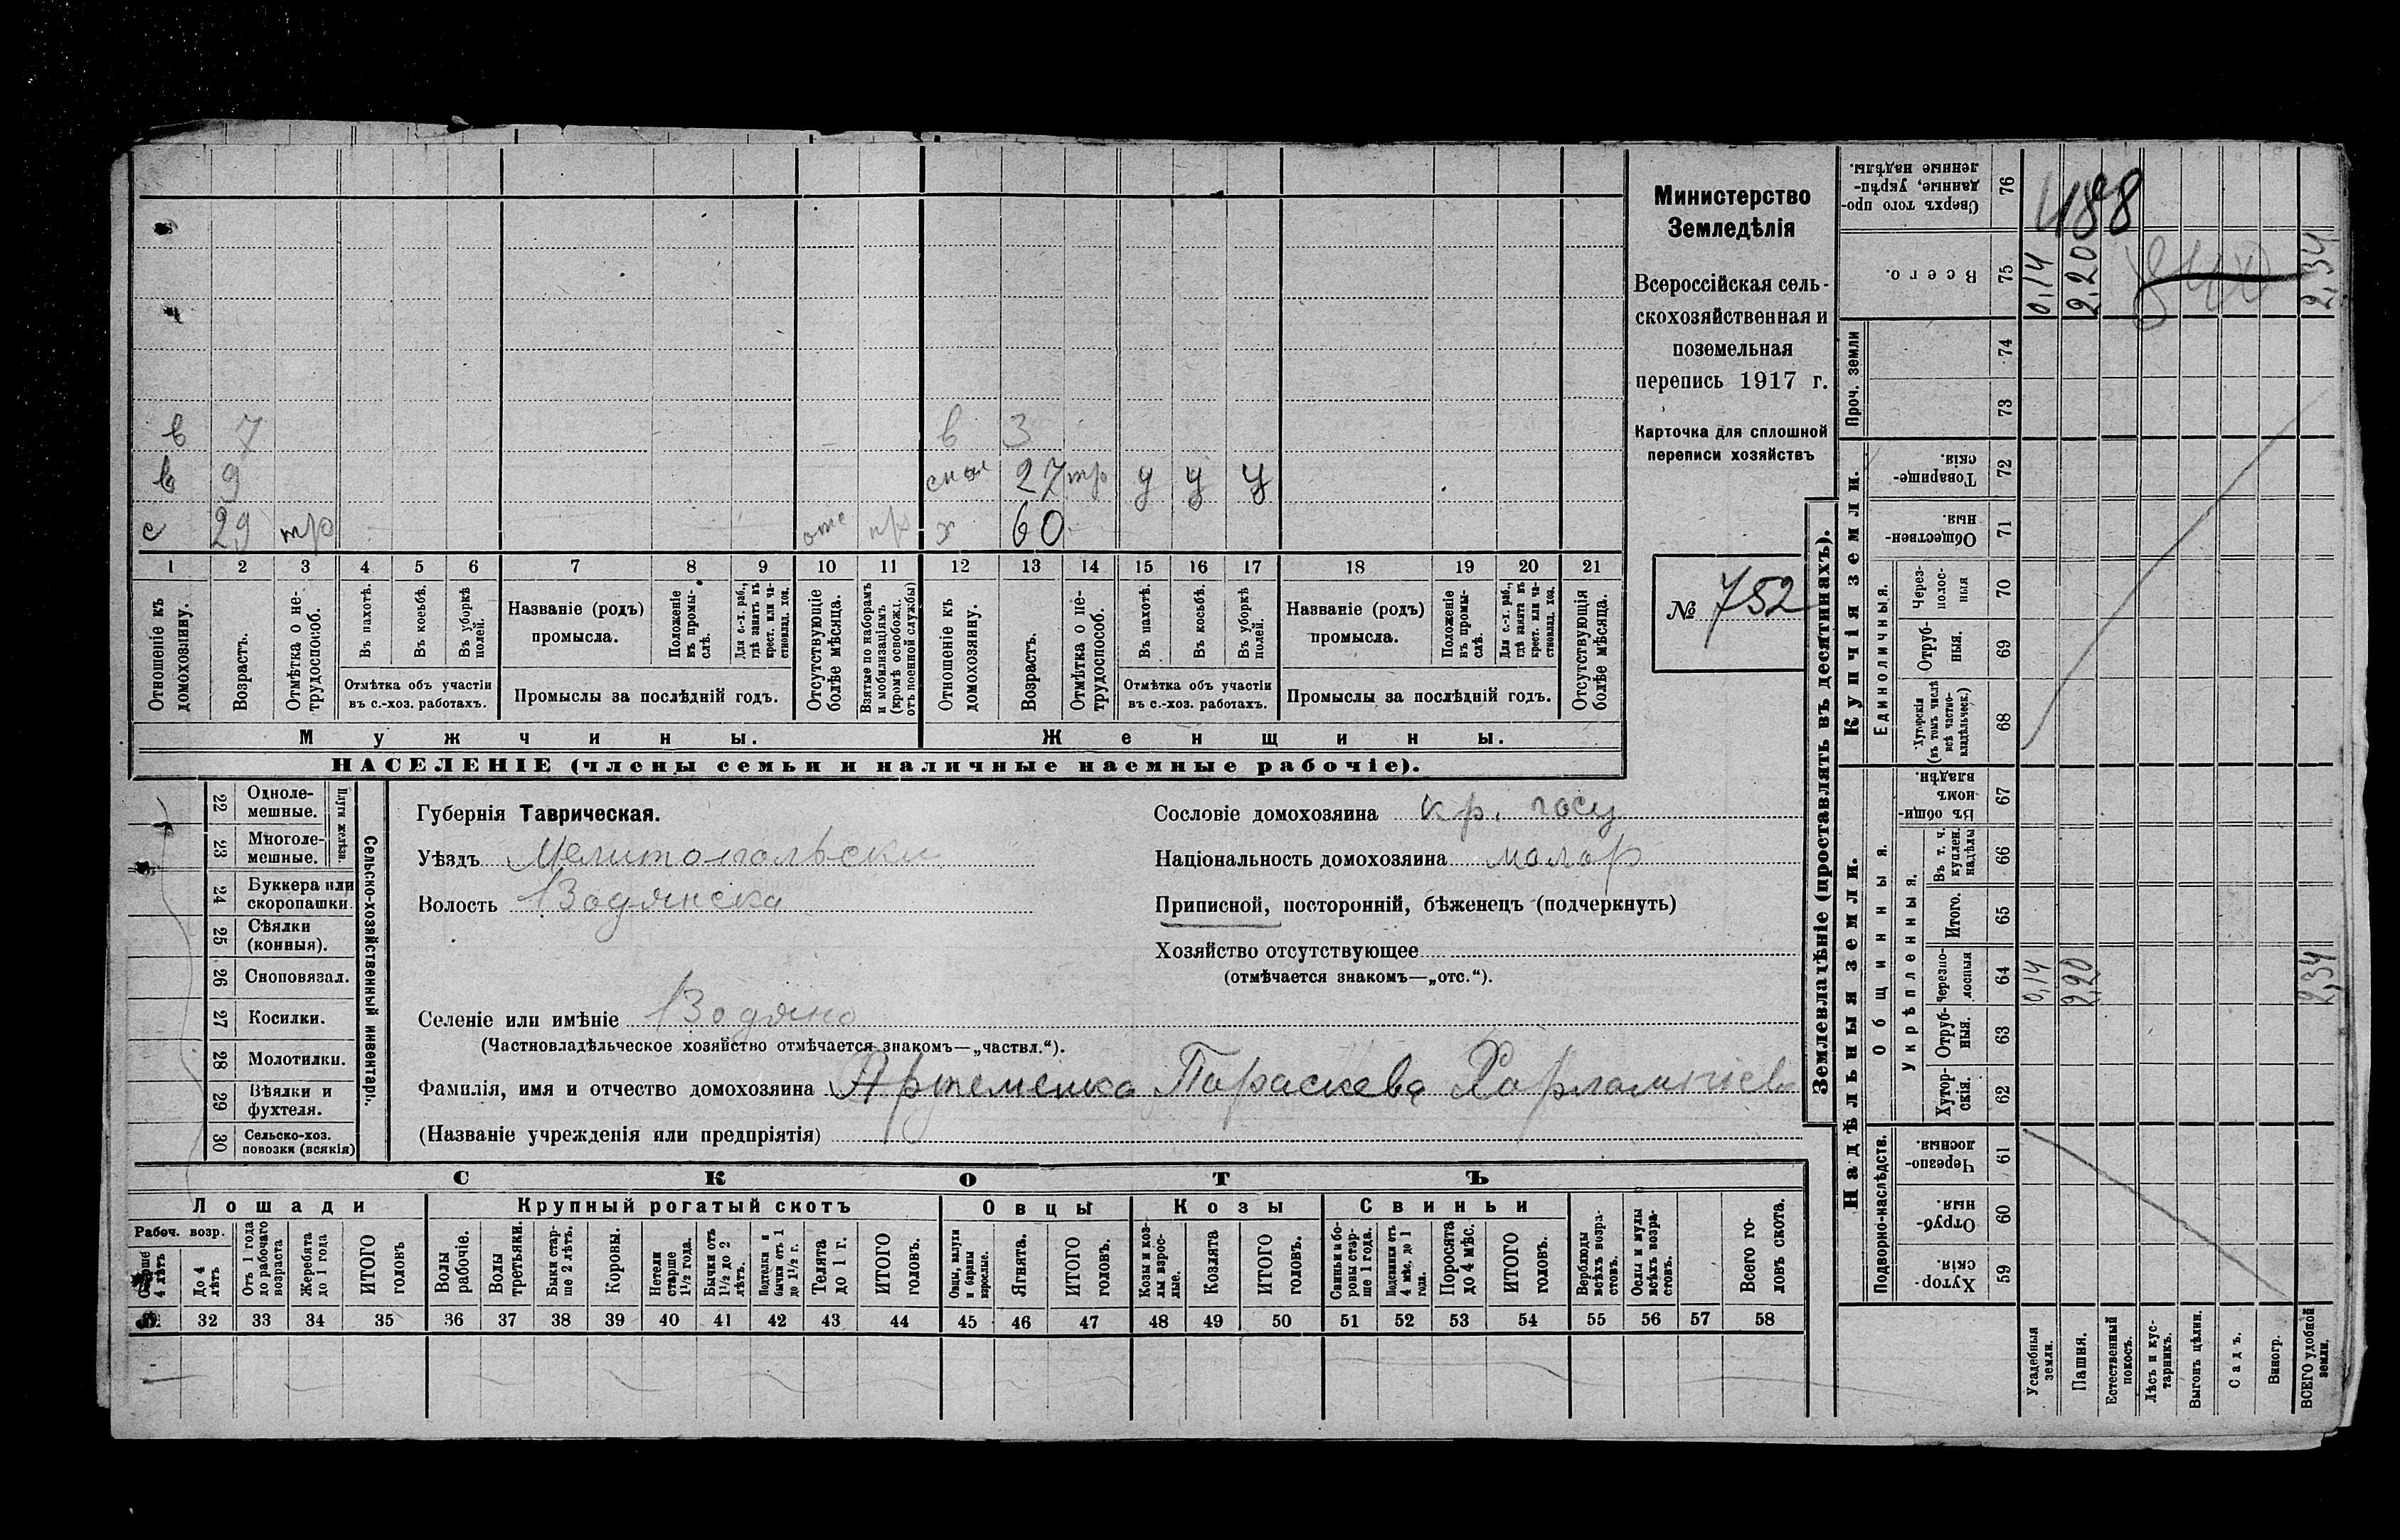 в 7 в 3
в 9 снох 27 тр у у у
с 29 тр отс х 60
1 2 3 4 5 6 7 8 9 10 11 12 13 14 15 16 17 18 19 20 21
Отношеніе къ домохозяину.
Возрастъ.
Отмѣтка о не-трудоспособ.
Въ пахотѣ.
Въ косьбѣ.
Въ уборкѣ полей.
Отмѣтка объ участіи въ с.-хоз. работахъ.
Названіе (родъ) промысла.
Положеніе въ промы-слѣ.
Для с.-х. раб., гдѣ занятъ въ крест. или ча-стновлад. хоз.
Промыслы за послѣдній годъ.
Отсутствующіе болѣе мѣсяца.
Взятые по наборамъ и мобилизаціямъ (кромѣ освобожд. отъ военной службы)
Отношеніе къ домохозяину.
Возрастъ.
Отмѣтка о не-трудоспособ.
Въ пахотѣ.
Въ косьбѣ.
Въ уборкѣ полей.
Отмѣтка объ участіи въ с.-хоз. работахъ.
Названіе (родъ) промысла.
Положеніе въ промы-слѣ.
Для с.-х. раб., гдѣ занята въ крест. или ча-стновлад. хоз.
Промыслы за послѣдній годъ.
Отсутствующія болѣе мѣсяца.
Мужчины. Женщины.
НАСЕЛЕНІЕ (члены семьи и наличные наемные рабочіе).
Министерство
Земледѣлія
Всероссійская сель-
скохозяйственная и
поземельная
перепись 1917 г.
Карточка для сплошной
переписи хозяйствъ
№ 752
22 Одноле-мешные.
23 Многоле-мешные.
Плуги желѣзн.
24 Буккера или скоропашки.
25 Сѣялки (конныя).
26 Сноповязал.
27 Косилки.
28 Молотилки.
29 Вѣялки и фухтеля.
30 Сельско-хоз. повозки (всякія)
Сельско-хозяйственный инвентарь.
Губернія Таврическая.
Уѣздъ Мелитопольски
Волость Водянска
Селеніе или имѣніе Водяно
(Частновладѣльческое хозяйство отмѣчается знакомъ—„частвл.“).
Фамилія, имя и отчество домохозяина Артеменка Параскева Харлампіев
(Названіе учрежденія или предпріятія)
Сословіе домохозяина кр. госу
Національность домохозяина малор
Приписной, посторонній, бѣженецъ (подчеркнуть)
Хозяйство отсутствующее
(отмѣчается знакомъ—„отс.“).
СКОТЪ
Лошади Крупный рогатый скотъ Овцы Козы Свиньи
Рабоч. возр.
Старше 4 лѣтъ
До 4 лѣтъ
Отъ 1 года до рабочаго возраста
Жеребята до 1 года
ИТОГО головъ
Волы рабочіе.
Волы третьяки.
Быки стар-ше 2 лѣтъ.
Коровы.
Нетели старше 1½ года.
Бычки отъ 1½ до 2 лѣтъ.
Подтелки и бычки отъ 1 до 1½ г.
Телята до 1 г.
ИТОГО головъ.
Овцы, валухи и бараны взрослые.
Ягнята.
ИТОГО головъ.
Козы и коз-лы взрос-лые.
Козлята
ИТОГО головъ.
Свиньи и бо-ровы стар-ше 1 года.
Подсвинки отъ 4 мѣс. до 1 года.
Поросята до 4 мѣс.
ИТОГО головъ.
Верблюды всѣхъ возра-стовъ.
Ослы и мулы всѣхъ возра-стовъ.
Всего го-ловъ скота.
32 33 34 35 36 37 38 39 40 41 42 43 44 45 46 47 48 49 50 51 52 53 54 55 56 57 58
Землевладѣніе (проставлять въ десятинахъ).
Надѣльныя земли. Купчія земли. Проч. земли
Подворно-наслѣдств.
Общинныя.
Укрѣпленныя.
Единоличныя.
Хутор-скія. 59
Отруб-ныя. 60
Черезпо-лосныя 61
Хутор-скія. 62
Отруб-ныя. 63
Черезпо-лосныя 64 0,14 2,20 2,34
Итого. 65
Въ т. ч. куплен. надѣлы 66
Въ общи-номъ владѣн. 67
Хуторскія (въ томъ числѣ всѣ частно-владѣльческ.) 68
Отруб-ныя. 69
Через-полос-ныя 70
Обществен-ныя. 71
Товарище-скія. 72
73
74
Всего. 75 0,14 2,20 2,34
Сверхъ того про-данные, укрѣп-ленные надѣлы. 76
488
Усадебныя земли.
Пашня.
Естественный покосъ.
Лѣсъ и кус-тарникъ.
Выгонъ цѣлин.
Садъ.
Виногр.
ВСЕГО удобной земли.